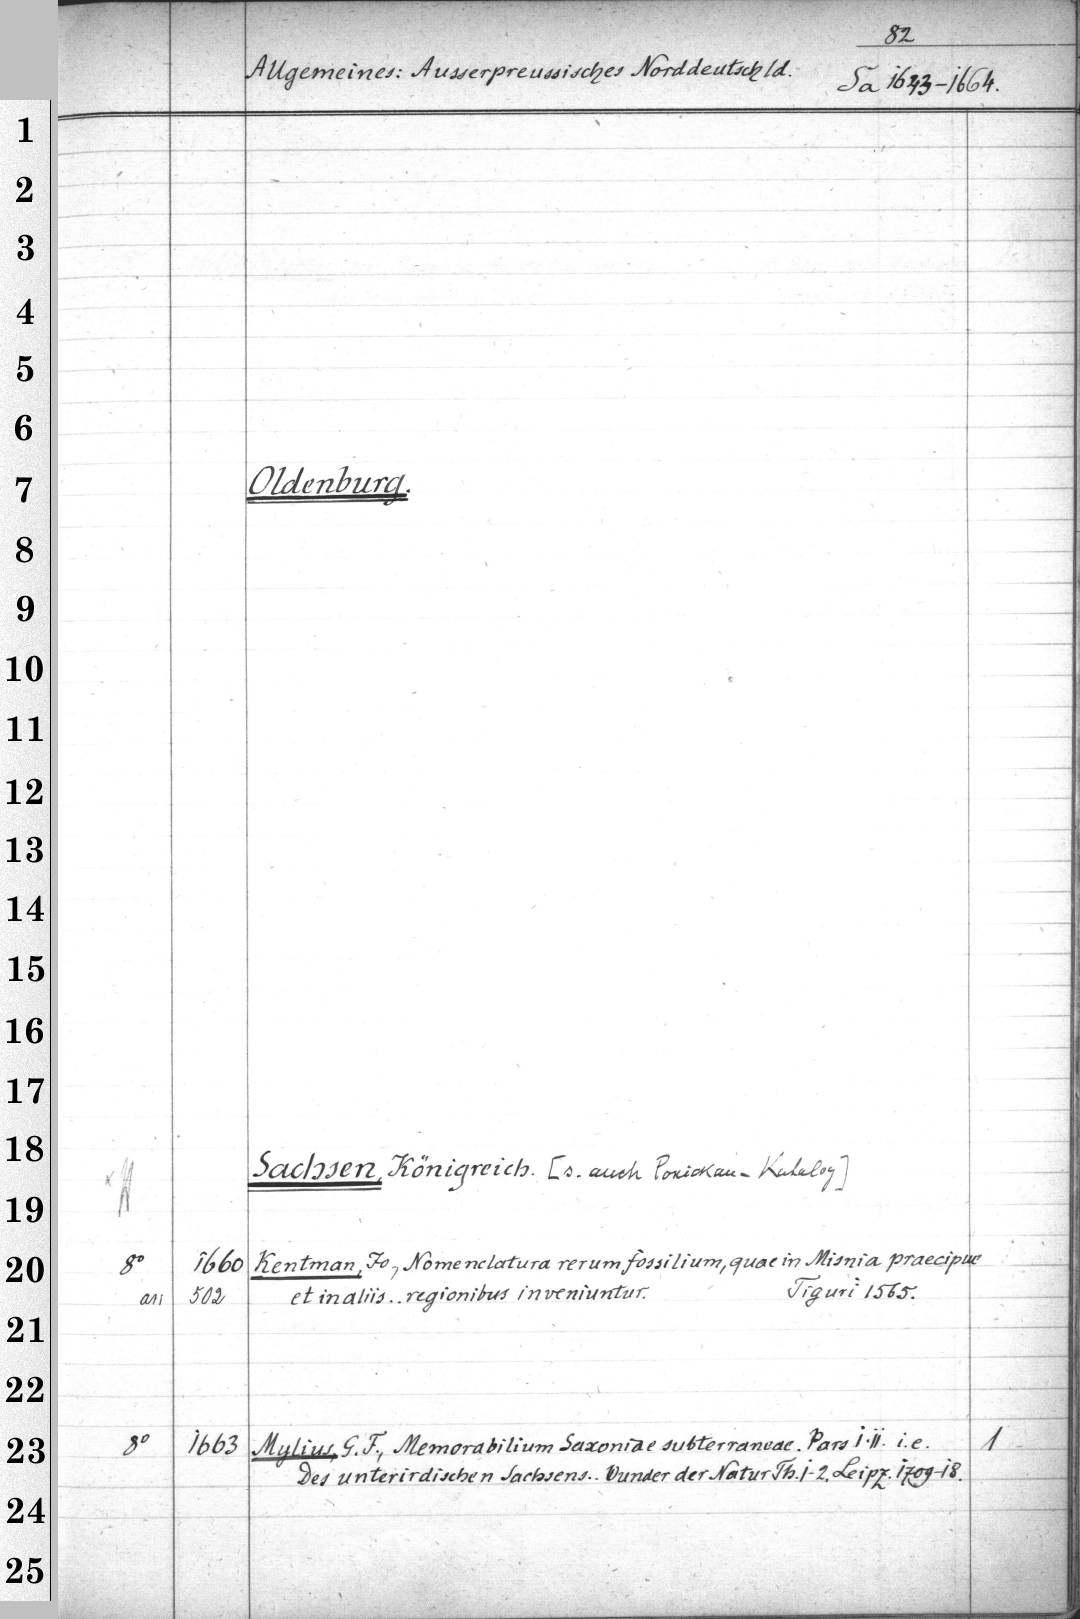 82
Allgemeines: Ausserpreussisches Norddeutschld. Ta 1643-1664.
1
2
3
4
5
6
7 Oldenburg.
8
9
10
11
12
13
14
15
16
17
18 Sachsen, Königreich. [s. auch Ponickau-Katalog]
19
20 8° 1660 Kentman, Jo, Nomenclatura rerum fossilium, quae in Misnia praecipue
an 502 et in aliis.. regionibus inveniuntur. Tiguri 1565.
21
22
23 8° 1663 Mylius, G. F., Memorabilium Saxoniae subterraneae. Pars I.II. i.e. 1
Des unterirdischen Sachsens.. Wunder der Natur Th. 1-2. Leipz. 1709-18.
24
25